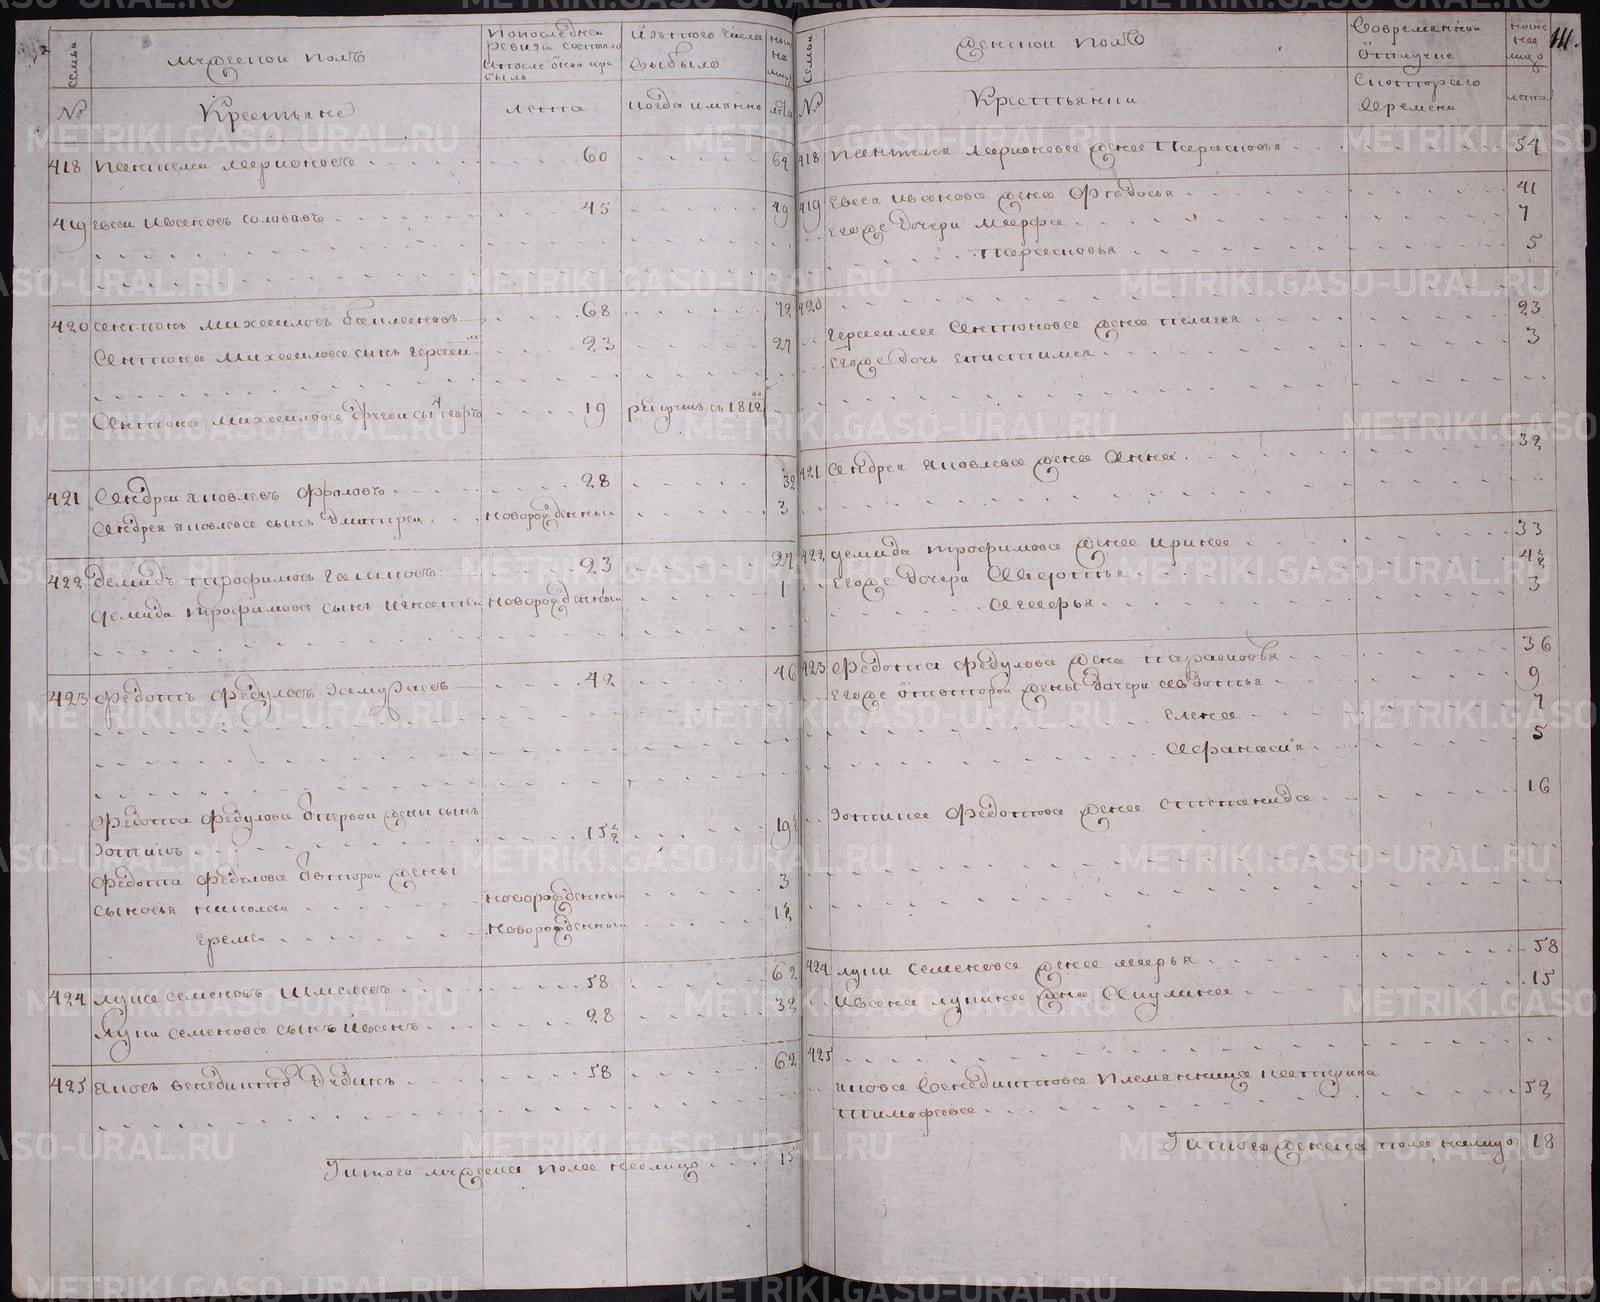 семьи
мужескои полъ
Попоследнеи
ревизи состояло
ипосле онои при
было
Изътого числа
выбыло
ныне
на
лицо
№
Крестьяне
лета
когда имянно
лета
418 пантелеи ларионовъ 60 64
419 евсеи Ивановъ солававъ 45 49
420 антонъ михаиловъ 68 72
Антона михаилова сынъ герасим 23 27
Антона михаилова 19 рекрутъ съ 1812
421 Андреи яковлевъ фроловъ 28 32
Андрея яковлева сынъ дмитреи новорожденныи 3
422 демидъ трофимовъ галиновъ 23 27
демида трофимова сынъ игнатеи новорожденныи 1
423 федотъ федуловъ 42 46
федота федулова отпервои жены сынъ
Зотикъ 15½ 19½
федота федулова отвторои жены
сыновья николаи новорожденныи 3
еремеи новорожденныи 1½
424 лупа семеновъ шмелевъ 58 62
лупы семенова сынъ Иванъ 28 32
425 яковъ венедиктовъ дубинъ 58 62
Iитого мужска пола налицо 15
семьи
женскои полъ
Современнои
отлучке
ныне
нее
лицо
111.
№
Крестьянки
Скоторого
времени
лета
418 пантелея ларионова жена Парасковья 54
419 евсея иванова жена Федосья 41
Егоже дочери Марфа 7
Парасковья 5
420
герасима Антонова жена пелагея 23
Егоже дочь епистимея 3
421 Андрея яковлева жена Анна 32
422 демида трофимова жена ирина 33
Егоже дочери Авдотья 4½
Агафья 3
423 федота федулова жена парасковья 36
Егоже откоторои жены дочери авдотья 9
елена 7
Афанасия 5
Зотика Федотова жена степанида 16
424 лупы семенова жена марья 58
Ивана лупина жена Акулина 15
425
якова Венедиктова племянница катерина
тимофеева 52
Iитого женска пола налицо 18
METRIKI.GASO-URAL.RU